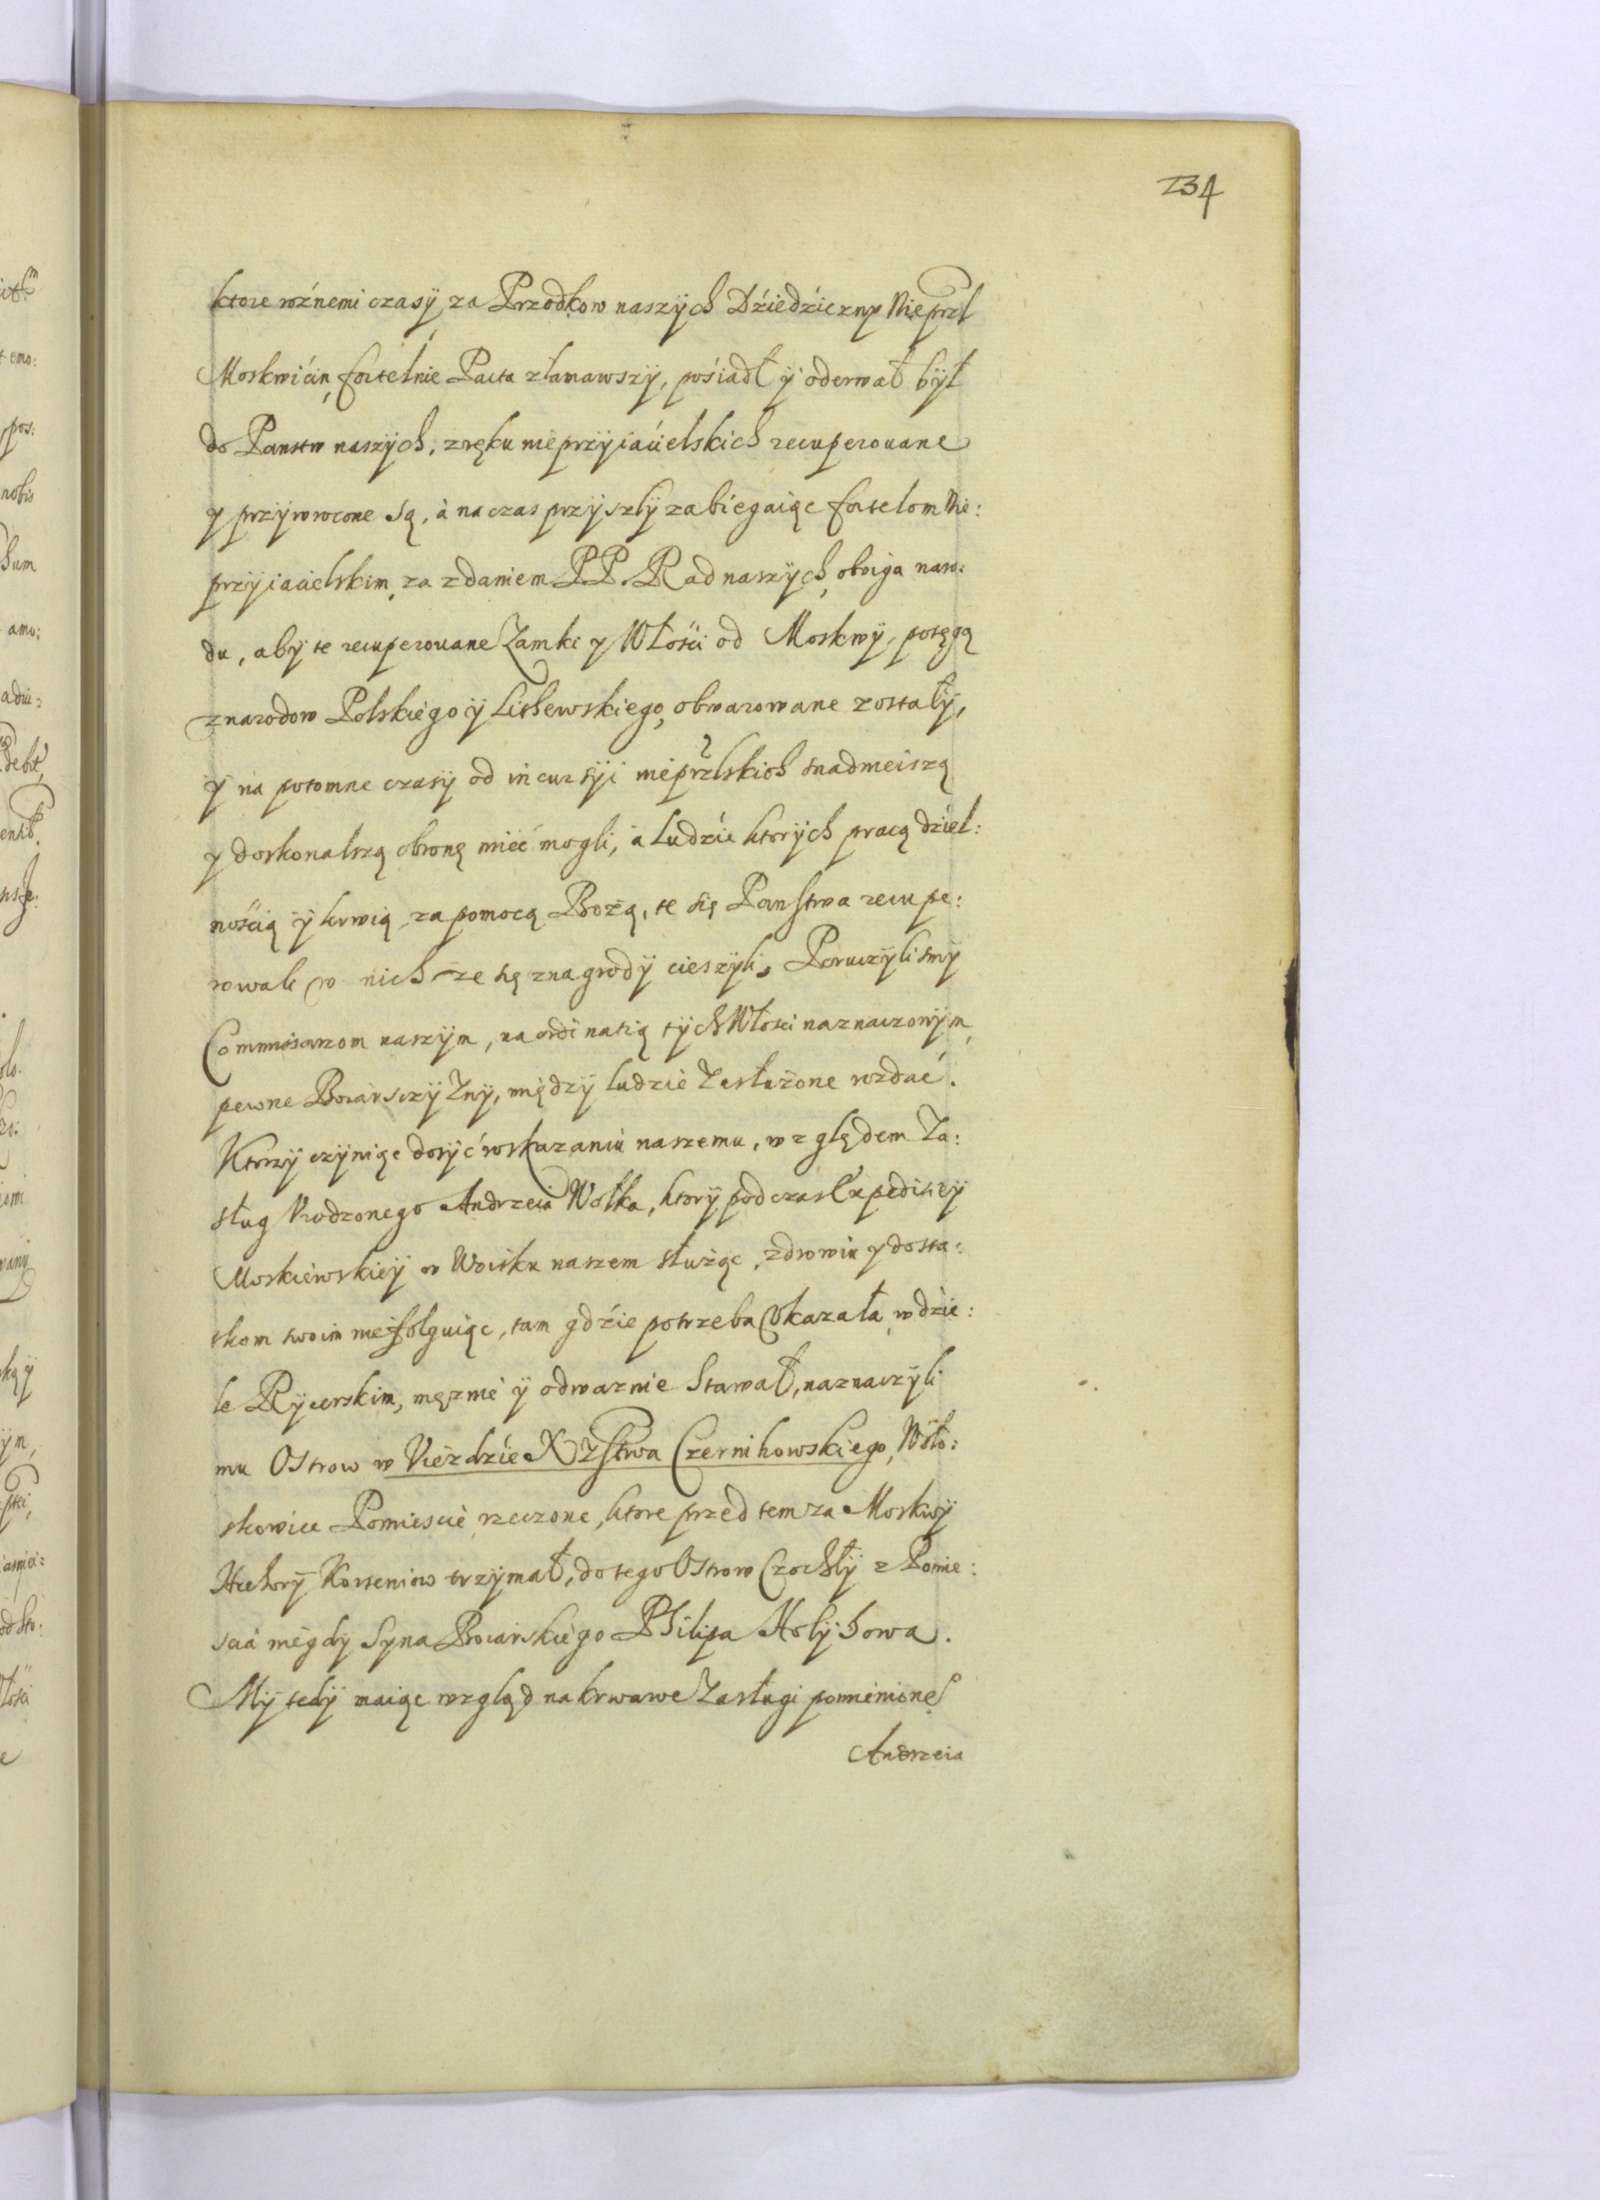 234
ktore roźnemi czasÿ za Przodkow naszÿch Dźiedźiczny Nieprzl
Moskwićin, fortelnie Pacta złamawszÿ, pośiadł ÿ oderwał bÿł
do Panstw naszÿch, z ręku nieprzÿiaćielskich recuperouane
y przÿwrocone są, à na czas przÿszłÿ zabiegaiąc fortelom Nie:
przÿiaćielskim, za zdaniem PP. Rad naszÿch, oboiga naro:
du, abÿ te recuperouane Zamki y Włośći od Moskwÿ, potęgą
z narodow Polskiego ÿ Lithewskiego, obwarowane zostałÿ,
ÿ na potomne czasÿ od incursÿi nieprzlskich snadnieiszą
y doskonalszą obronę mieć mogli, à ludźie ktorÿch pracą dźiel:
nośćią ÿ krwią, za pomocą Bożą, te się Panstwa recupe:
rowali w nich ze się z nagrodÿ cieszÿli, Poruczÿlismÿ
Commissarzom naszÿm, na ordinatią tÿch Włosci naznaczonÿm,
pewne Boiarsczÿznÿ, międzÿ ludzie Zasłużone rozdać.
Ktorzÿ czÿniąc dosÿć roskazaniu naszemu, względem Za:
sług Vrodzonego Andrzeia Wolka, ktorÿ podczas Expeditieÿ
Moskiewskieÿ w Woisku naszem służąc, zdrowiu y dosta:
tkom swoim nie folguiąc, tam gdźie potrzeba Vkazała, w dźie:
le Rÿcerskim, mężnie ÿ odwaznie Stawał, naznaczÿli
mu Ostrow w Vieźdźie Xzstwa Czernihowskiego, Wÿło:
skowicu Pomiescie rzeczone, ktore przed tem za Moskwÿ
Hrehorÿ Korseniow trzÿmał, do tego Ostrow Czochłÿ z Pomie:
scia niegdy Syna Boiarskiego Philipa Holÿhowa.
Mÿ tedÿ maiąc wzgląd na krwawe Zasługi pomienione
Andrzeia